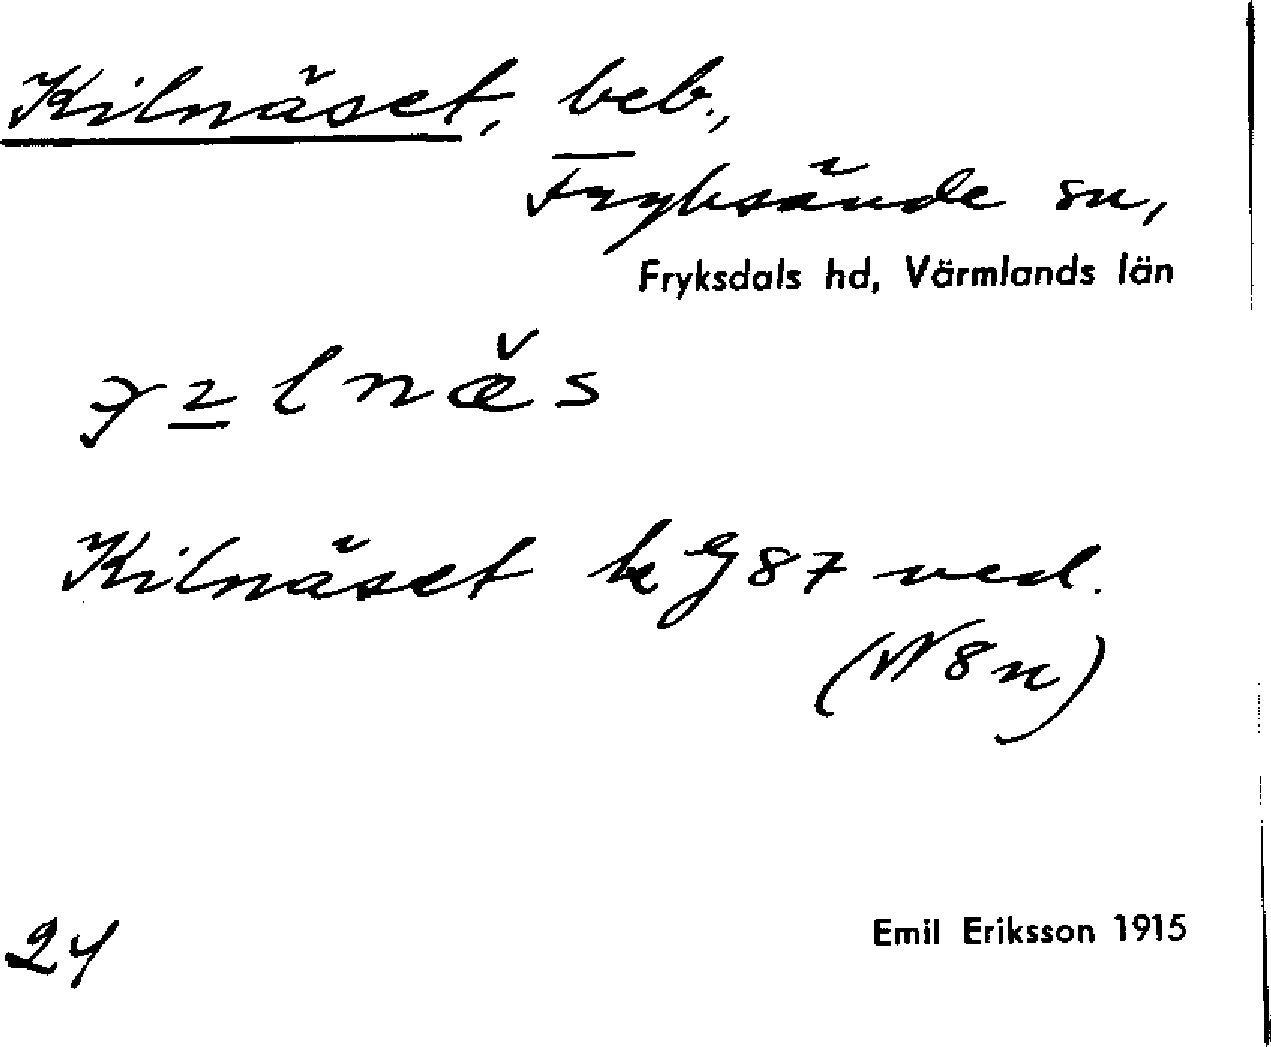 Kilnäset, beb.,
Fryksände sn,
Fryksdals hd, Värmlands län
Kilnäset 87 ved.
(N 8 n)
24
Emil Eriksson 1915